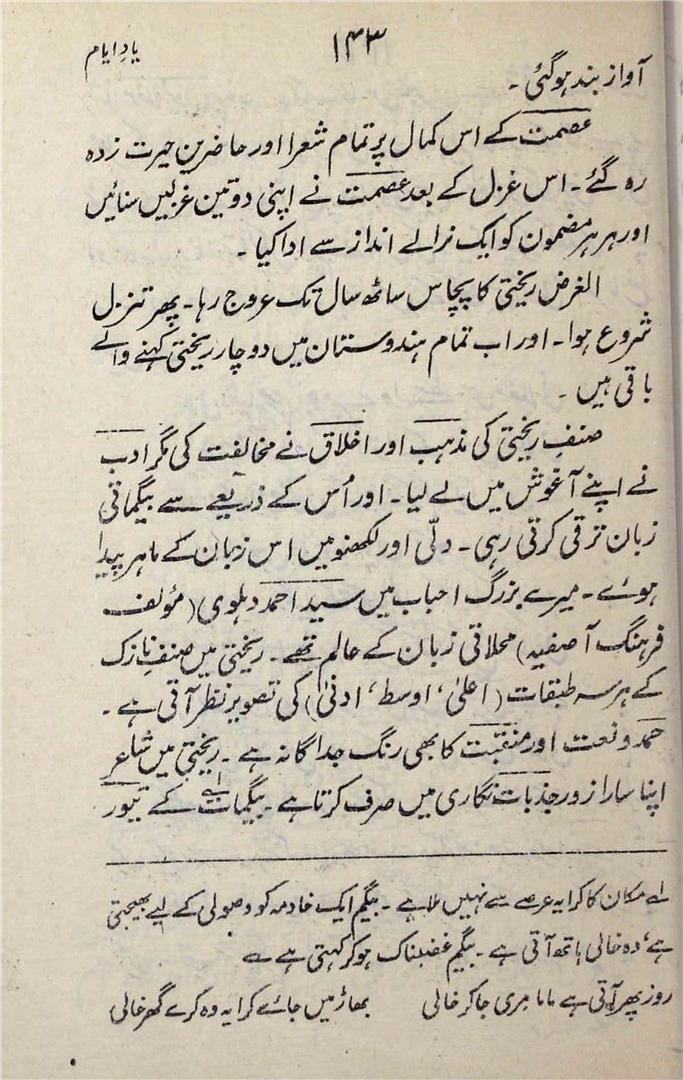 ۱۴۳
یادِ ایام
آواز بند ہوگئی۔
عصمت کے اس کمال پر تمام شعرا اور حاضرین حیرت زدہ
رہ گئے۔ اس غزل کے بعد عصمت نے اپنی دو تین غزلیں سنائیں
اور ہر ہر مضمون کو ایک نرالے انداز سے ادا کیا۔
الغرض ریختی کا پچاس ساٹھ سال تک عروج رہا۔ پھر تنزل
شروع ہوا۔ اور اب تمام ہندوستان میں دو چار ریختی کہنے والے
باقی ہیں۔
صنفِ ریختی کی مذہب اور اخلاق نے مخالفت کی مگر ادب
نے اپنے آغوش میں لے لیا۔ اور اُس کے ذریعے سے بیگماتی
زبان ترقی کرتی رہی۔ دلّی اور لکھنو میں اس زبان کے ماہر پیدا
ہوئے۔ میرے بزرگ احباب میں سید احمد دہلوی (مؤلف
فرہنگ آصفیہ) محلاتی زبان کے عالم تھے۔ ریختی میں صنفِ نازک
کے ہر سہ طبقات (اعلیٰ، اوسط، ادنیٰ) کی تصویر نظر آتی ہے۔
حمد و نعت اور منقبت کا بھی رنگ جداگانہ ہے۔ ریختی میں شاعر
اپنا سارا زور جذبات نگاری میں صرف کرتا ہے۔ بیگمات کے تیور
لے مکان کا کرایہ عرصے سے نہیں ملا ہے۔ بیگم ایک خادمہ کو وصولی کے لیے بھیجتی
ہے، وہ خالی ہاتھ آتی ہے۔ بیگم غضبناک ہو کر کہتی ہے ؎
روز پھر آتی ہے ماما مِری جا کر خالی بھاڑ میں جائے کرایہ وہ کرے گھر خالی